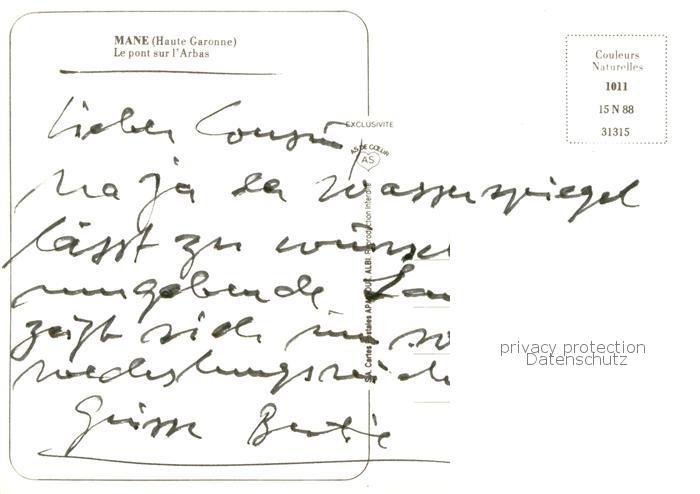 MANE (Haute Garonne)
Le pont sur l'Arbas
Couleurs
Naturelles
1011
15 N 88
31315
EXCLUSIVITE
AS DE CŒUR
AS
S.A. Cartes Postales APA-POUX ALBI. Reproduction Interdite
Lieber Cousin
Na ja der Wasserspiegel
lässt zu wünsc
umgebende Lan
zeigt sich im so
wechslungsreich
Grüsse Bertie
privacy protection
Datenschutz